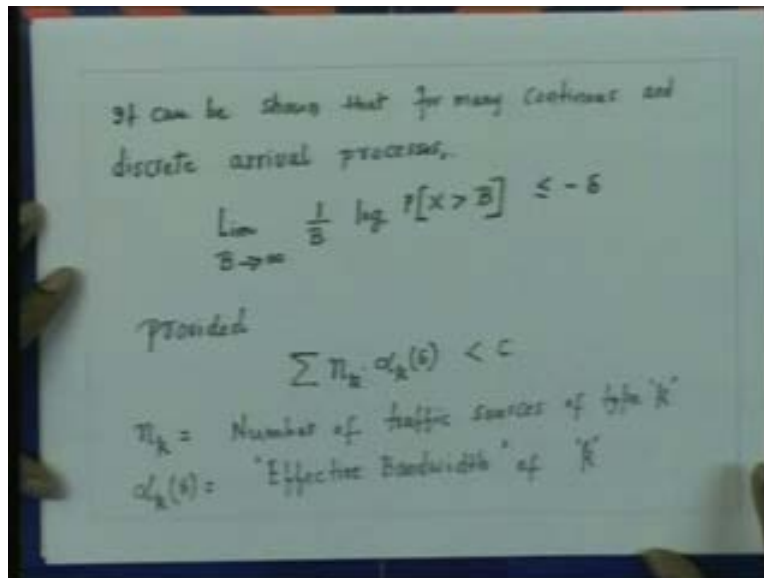 It can be shown that for many continous and
discrete arrival processes,
Lim 1/B log P[X > B] ≤ - δ
B→∞
provided
∑ n_k α_k(δ) < c
n_k = Number of traffic sources of type "k"
α_k(δ) = "Effective Bandwidth" of "k"